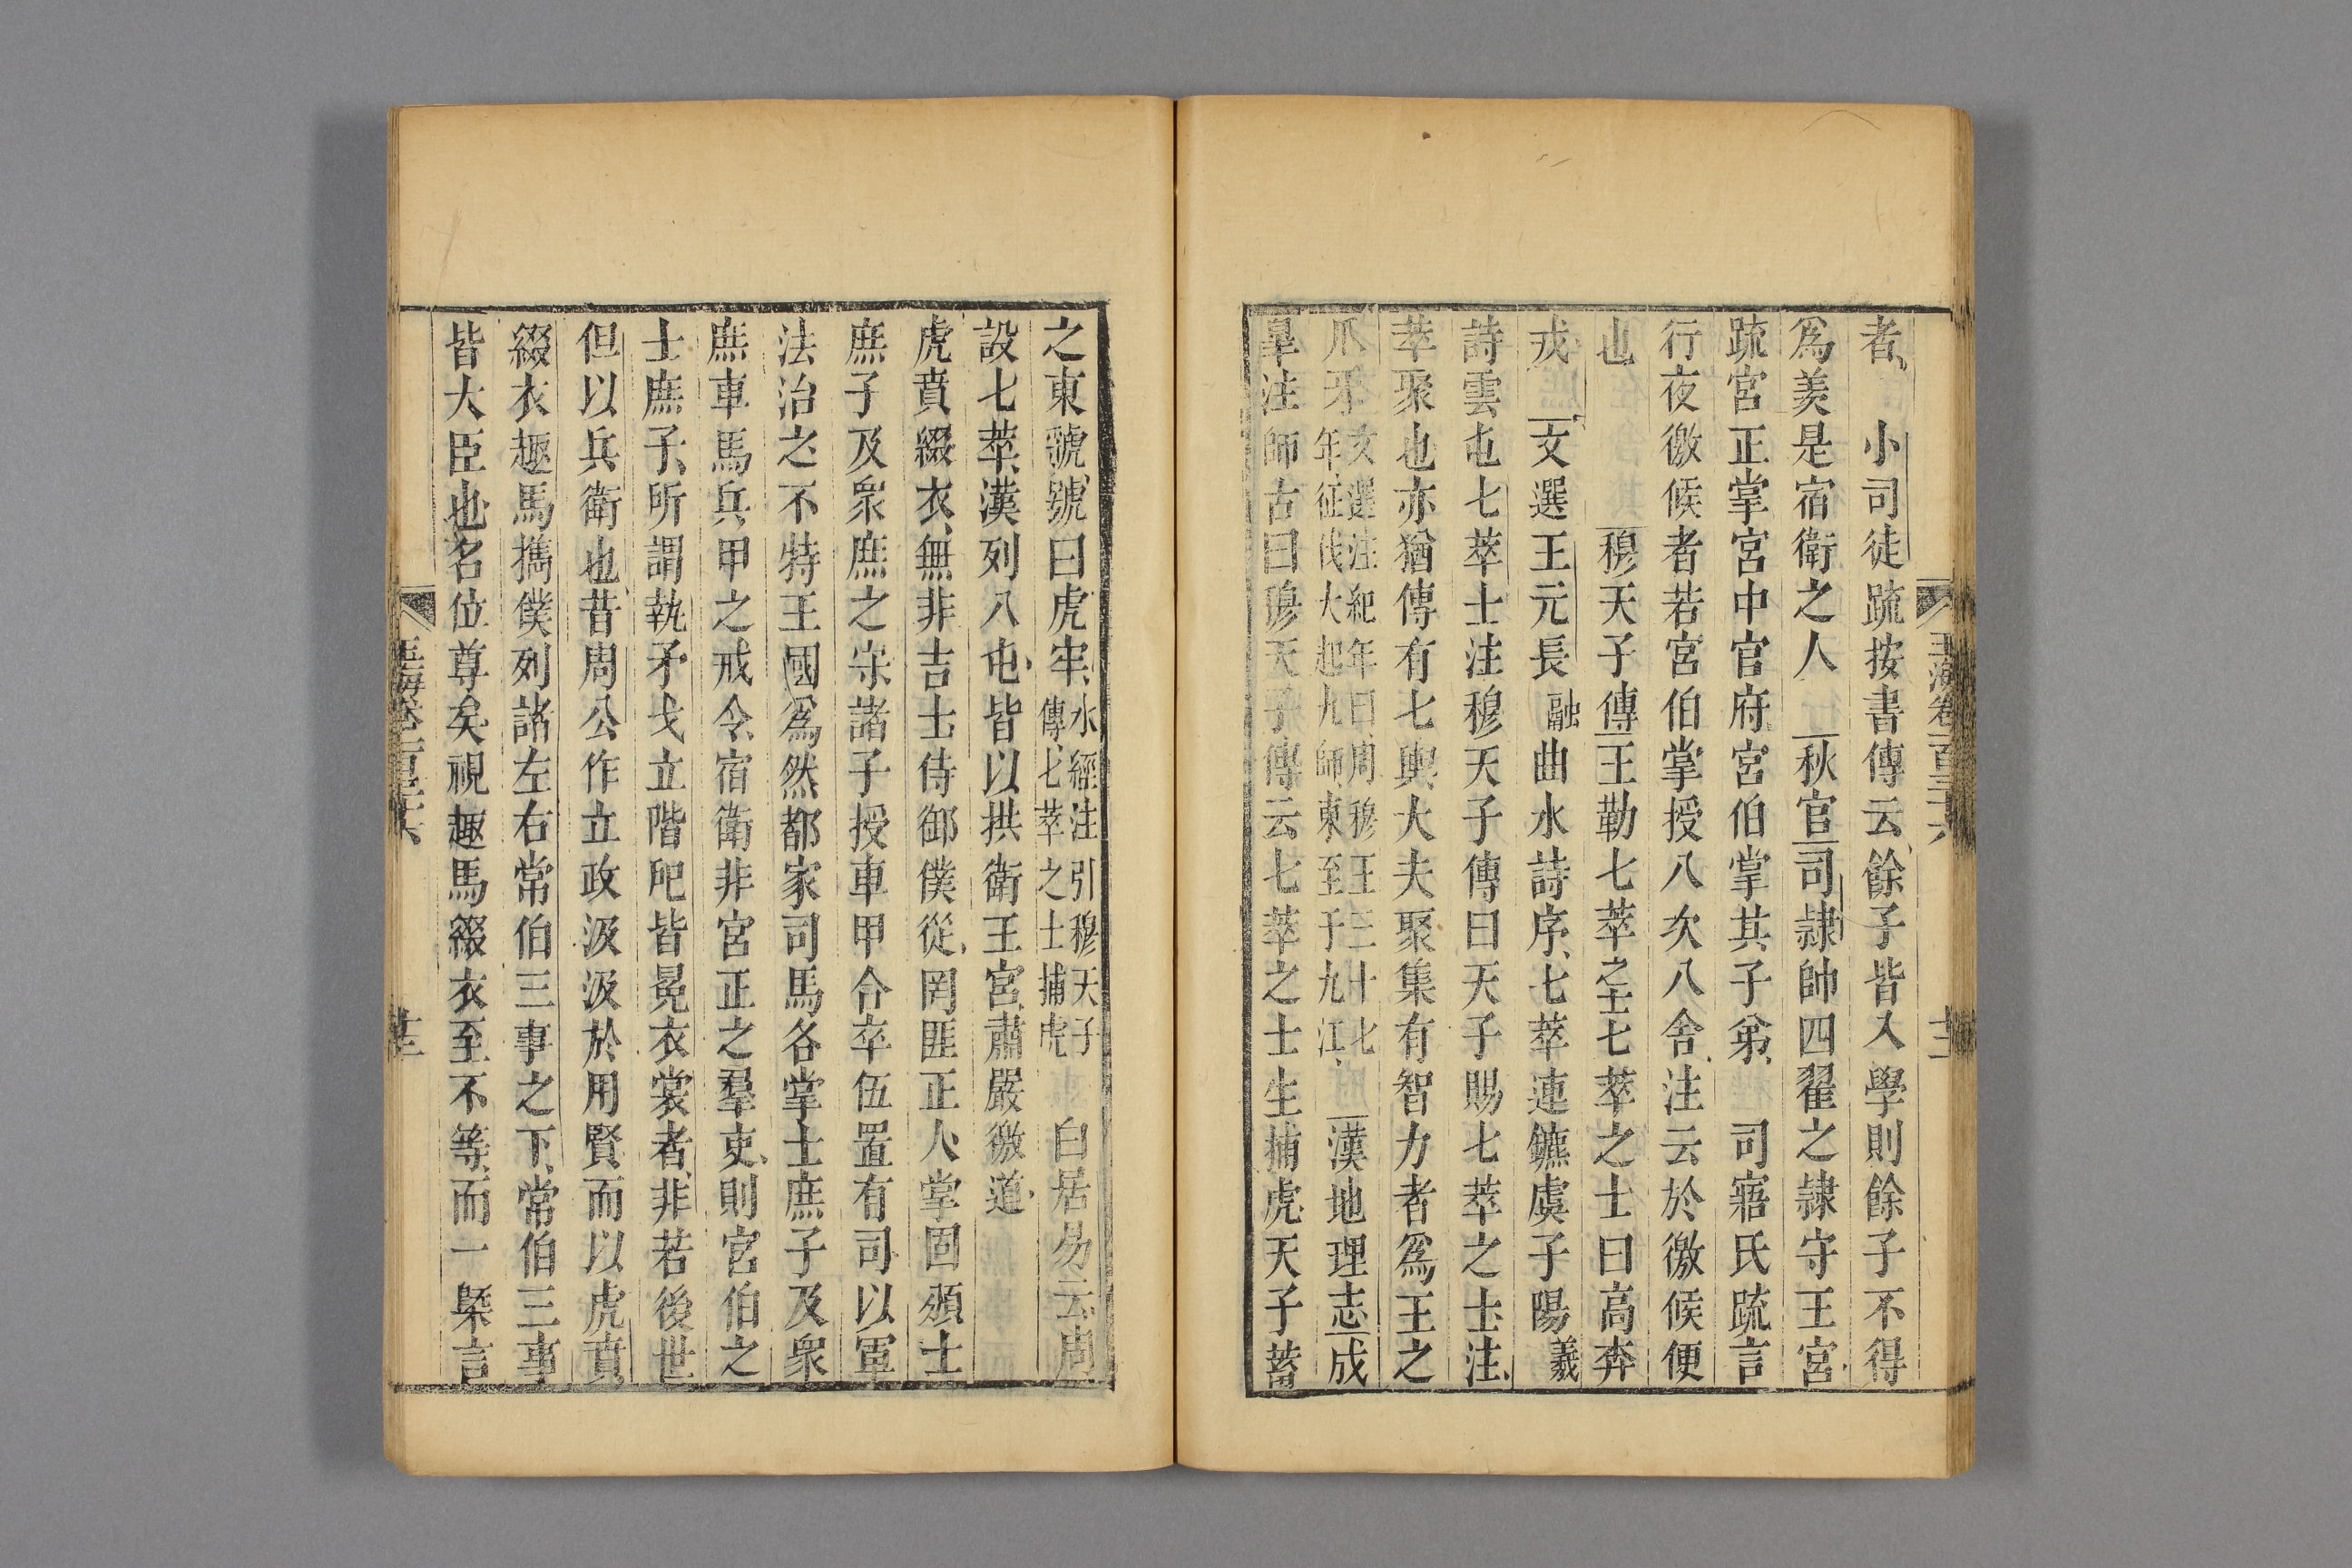 者 小司徒疏按書傳云餘子皆入學則餘子不得
爲羨是宿衛之人 秋官司隷帥四翟之隷守王宮
疏宮正掌宮中官府宮伯掌其子弟 司寤氏疏言
行夜徼候者若宮伯掌授八次八舍注云於徼候便
也 穆天子傳王勒七萃之士七萃之士曰高奔
戎 文選王元長融曲水詩序七萃連鑣虞子陽羲
詩雲屯七萃士注穆天子傳曰天子賜七萃之士注
萃聚也亦猶傳有七輿大夫聚集有智力者爲王之
爪牙文選注紀年曰周穆王三十七年征伐大起九師東至于九江 漢地理志成
臯注師古曰穆天子傳云七萃之士生捕虎天子蓄
玉海卷一百三十六
之東虢號曰虎牢水經注引穆天子傳七萃之士捕虎 白居易云周
設七萃漢列八屯皆以拱衛王宮肅嚴徼道
虎賁綴衣無非吉士侍御僕從罔匪正人掌固頒士
庶子及衆庶之守諸子授車甲合卒伍置有司以軍
法治之不特王國爲然都家司馬各掌士庶子及衆
庶車馬兵甲之戒令宿衛非宮正之羣吏則宮伯之
士庶子所謂執矛戈立階戺皆冕衣裳者非若後世
但以兵衛也昔周公作立政汲汲於用賢而以虎賁
綴衣趣馬攜僕列諸左右常伯三事之下常伯三事
皆大臣也名位尊矣視趣馬綴衣至不等而一槩言